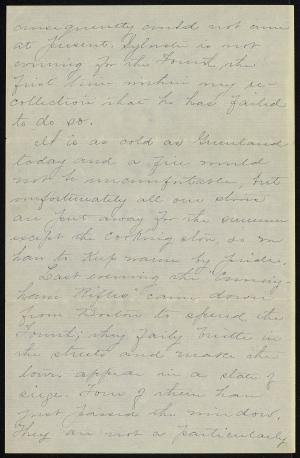 consequently could not come
at present. Sylvester is not
coming for the Fourth, the
first time within my re-
collection that he has failed
to do so.
It is as cold as Greenland
today and a fire would
not be uncomfortable, but
unfortunately all our stoves
are put away for the summer
except the cooking stove, so we
have to keep warm by pride.
Last evening the "Cunning-
ham Rifles" came down
from Boston to spend the
Fourth; they fairly bustle in
the streets and make the
town appear in a state of
siege. Four of them have
just passed the window.
They are not a particularly